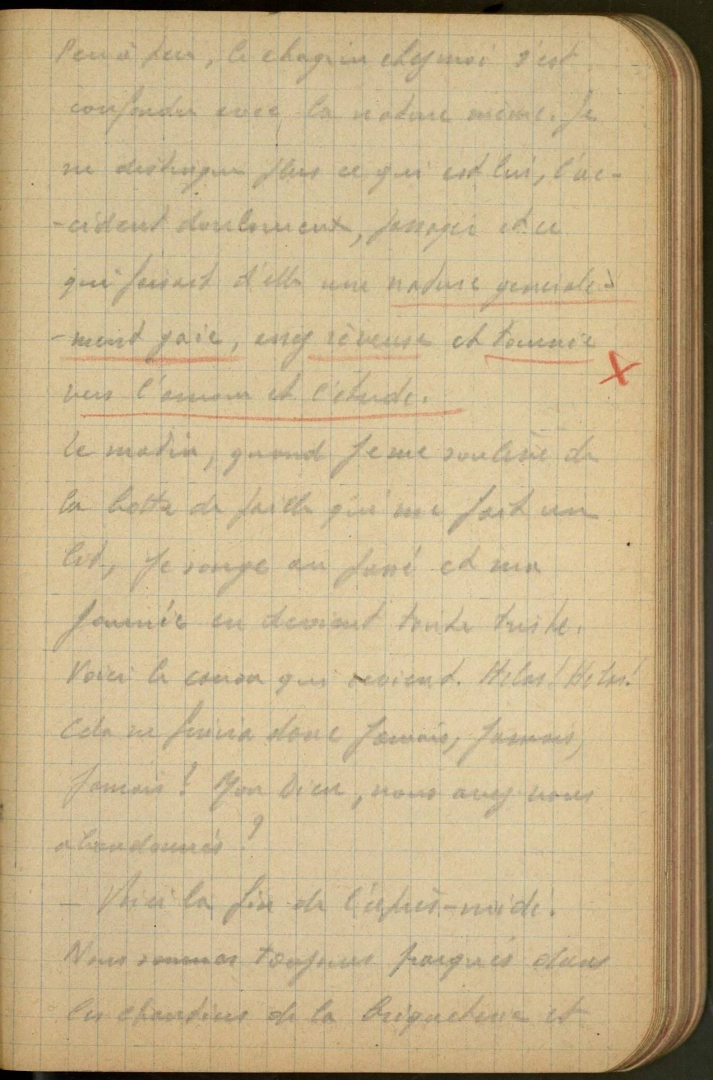 Peu à peu, le chagrin chez moi s'est
confondu avec la nature même. Je
ne distingue plus ce qui est lui, l'ac-
-cident douloureux, passager et ce
qui faisait d'elle une nature générale-
-ment gaie, assez rêveuse et tournée
vers l'amour et l'étude.
Le matin, quand je me soulève de
la botte de paille qui me fait un
lit, je songe au passé et ma
journée en devient toute triste.
Voici le canon qui revient. Hélas! Hélas!
Cela ne finira donc jamais, jamais,
jamais! Mon Dieu, nous avez nous
abandonnés?
- Voici la fin de l'après-midi.
Nous sommes toujours parqués dans
les chantiers de la briqueterie et